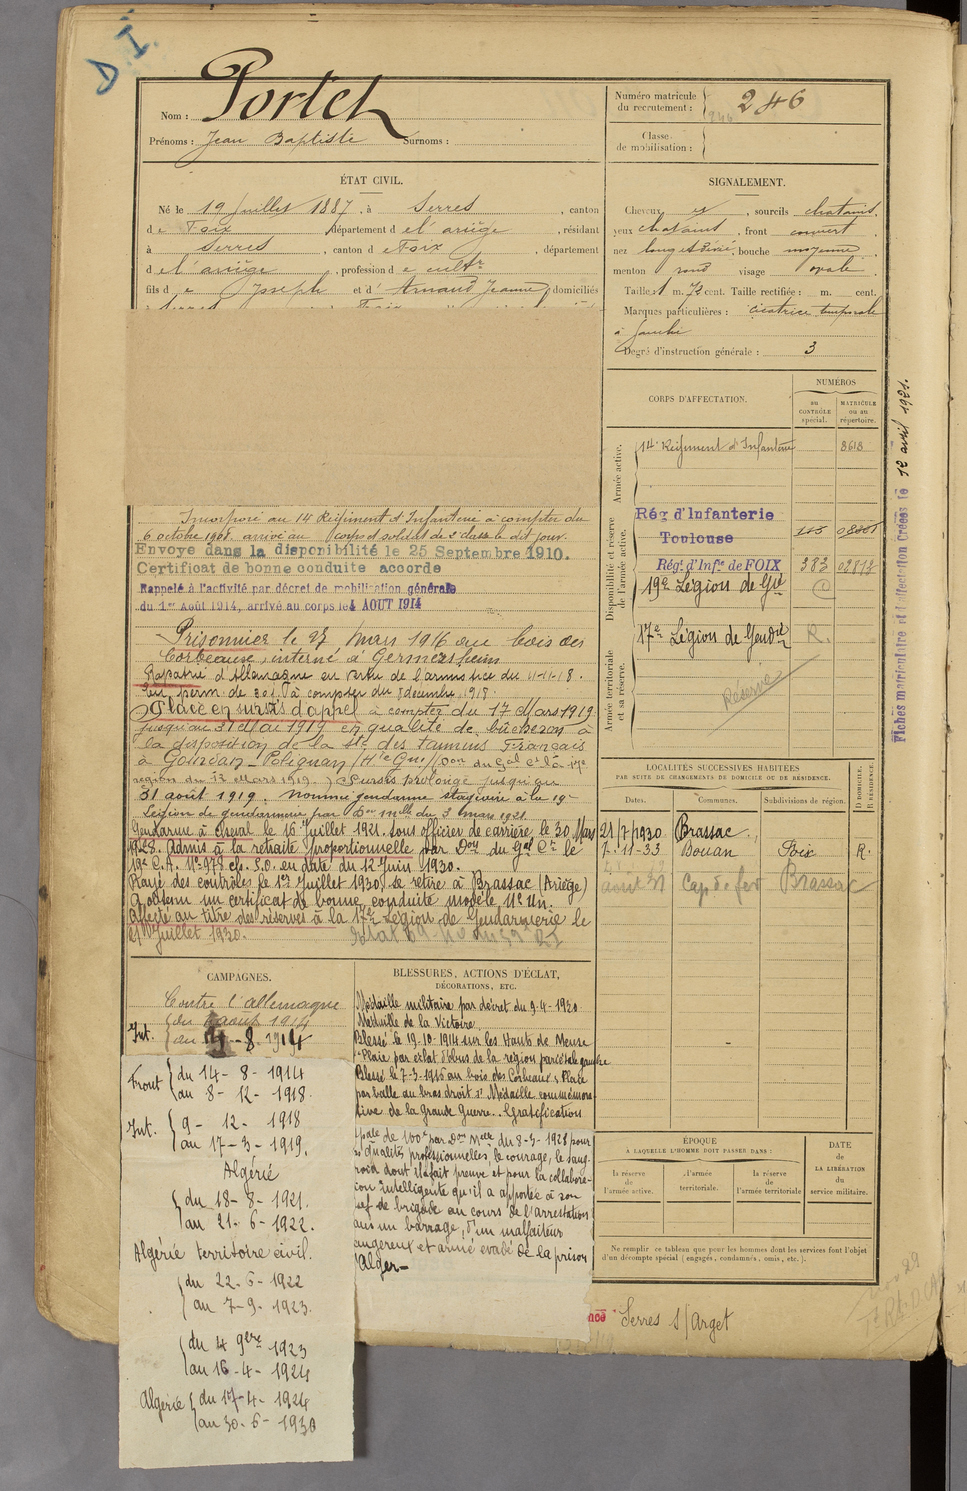 D I.
Nom : Portet
Prénoms : Jean Baptiste Surnoms :
Numéro matricule du recrutement : 246
246
Classe de mobilisation :
ÉTAT CIVIL.
Né le 19 Juillet 1887, à Serres, canton
de Foix, département de l'ariège, résidant
à Serres, canton de Foix, département
de l'ariège, profession de cultr
fils de Joseph et d' Arnaud Jeanne domiciliés
SIGNALEMENT.
Cheveux et, sourcils chatains,
yeux chatains, front couvert
nez long et dévié, bouche moyenne
menton rond visage ovale
Taille : 1 m. 72 cent. Taille rectifiée : m. cent.
Marques particulières : cicatrice temporale
à gauche
Degré d'instruction générale : 3
CORPS D'AFFECTATION.
NUMÉROS
au CONTRÔLE spécial.
MATRICULE ou au répertoire.
Armée active.
14e Régiment d'Infanterie 8618
Disponibilité et réserve de l'armée active.
Rég d'Infanterie
Toulouse
Rég. d'Inf.ie de FOIX 383
19e Légion de Gie
Armée territoriale et sa réserve.
17e Légion de Gendrie R.
Réservé
Incorporé au 14 Régiment d'Infanterie à compter du
6 octobre 1908. arrivé au corps et soldat de 2e classe le dit jour.
Envoyé dans la disponibilité le 25 Septembre 1910.
Certificat de bonne conduite accordé
Rappelé à l'activité par décret de mobilisation générale
du 1er Août 1914, arrivé au corps le 4 AOUT 1914
Prisonnier le 27 mars 1916 au bois des
Corbeaux, interné à Germersheim
Rapatrié d'Allemagne en vertu de l'armistice du 11-11-18.
En perm. de 30 j. à compter du 8 decembre 1918.
Placé en sursis d'appel à compter du 17 Mars 1919
jusqu'au 31 Mai 1919 en qualité de bûcheron à
la disposition de la Sté des Tanins Français
à Gourdan-Polignan (Hte Gne) (Don du Gal Ct la 17e
région du 12 Mars 1919.) Sursis prolongé jusqu'au
31 août 1919. Nommé gendarme stagiaire à la 19e
Légion de gendarmerie par Don Mlle du 3 mars 1921.
Gendarme à cheval le 16 Juillet 1921. sous officier de carrière, le 30 Mars
1928. Admis à la retraite proportionnelle par Don du Gal Ct le
19e C.A. No 978 en date du 12 Juin 1930.
Rayé des contrôles le 1er Juillet 1930, se retire à Brassac (Ariège)
A obtenu un certificat de bonne conduite modèle No Un.
Affecté au titre des réserves à la 17e Légion de Gendarmerie le
Juillet 1930.
LOCALITÉS SUCCESSIVES HABITÉES
PAR SUITE DE CHANGEMENTS DE DOMICILE OU DE RÉSIDENCE.
Dates. Communes. Subdivisions de région. D. DOMICILE. R. RÉSIDENCE.
21/7/1930 Brassac
7-11-33 Bouan Foix R.
août 37 Cap de fer Brassac
Fiches matriculaire et d'affectation créées le 12 avril 1927
CAMPAGNES.
Contre l'allemagne
Int. du 4 aout 1914
au 14-8-1914
Front du 14-8-1914
au 8-12-1918.
Int. 9-12-1918
au 17-3-1919.
Algérie
du 18-8-1921.
au 21-6-1922.
Algérie territoire civil.
du 22-6-1922
au 7-9-1923.
du 4 9bre 1923
au 16-4-1924
Algérie du 17-4-1924
au 30-6-1930
BLESSURES, ACTIONS D'ÉCLAT,
DÉCORATIONS, ETC.
Médaille militaire par décret du 9-4-1930
Médaille de la Victoire
Blessé le 19-10-1914 sur les Hauts de Meuse
Plaie par éclat d'obus de la région pariétale gauche
Blessé le 7-3-1916 au bois des Corbeaux, Plaie
par balle du bras droit. Médaille commémora
tive de la Grande Guerre. Gratification
de 100f par Don Mlle du 8-3-1928 pour
qualités professionnelles, le courage, le sang-
roid dont il a fait preuve et pour la collabora-
ion intelligente qu'il a apportée à son
ef de brigade au cours de l'arrestation
ans un barrage, d'un malfaiteur
angereux et armé evadé de la prison
Alger
ÉPOQUE
À LAQUELLE L'HOMME DOIT PASSER DANS :
la réserve de l'armée active. l'armée territoriale. la réserve de l'armée territoriale
DATE de LA LIBÉRATION du service militaire.
Ne remplir ce tableau que pour les hommes dont les services font l'objet
d'un décompte spécial (engagés, condamnés, omis, etc.).
Serres s/Arget